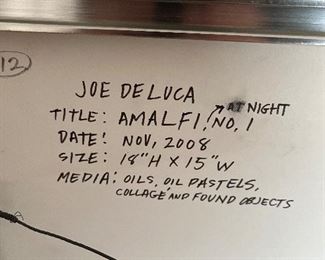 12
JOE DELUCA
AT NIGHT
TITLE: AMALFI, NO. 1
DATE: NOV, 2008
SIZE: 18"H X 15"W
MEDIA: OILS, OIL PASTELS,
COLLAGE AND FOUND OBJECTS